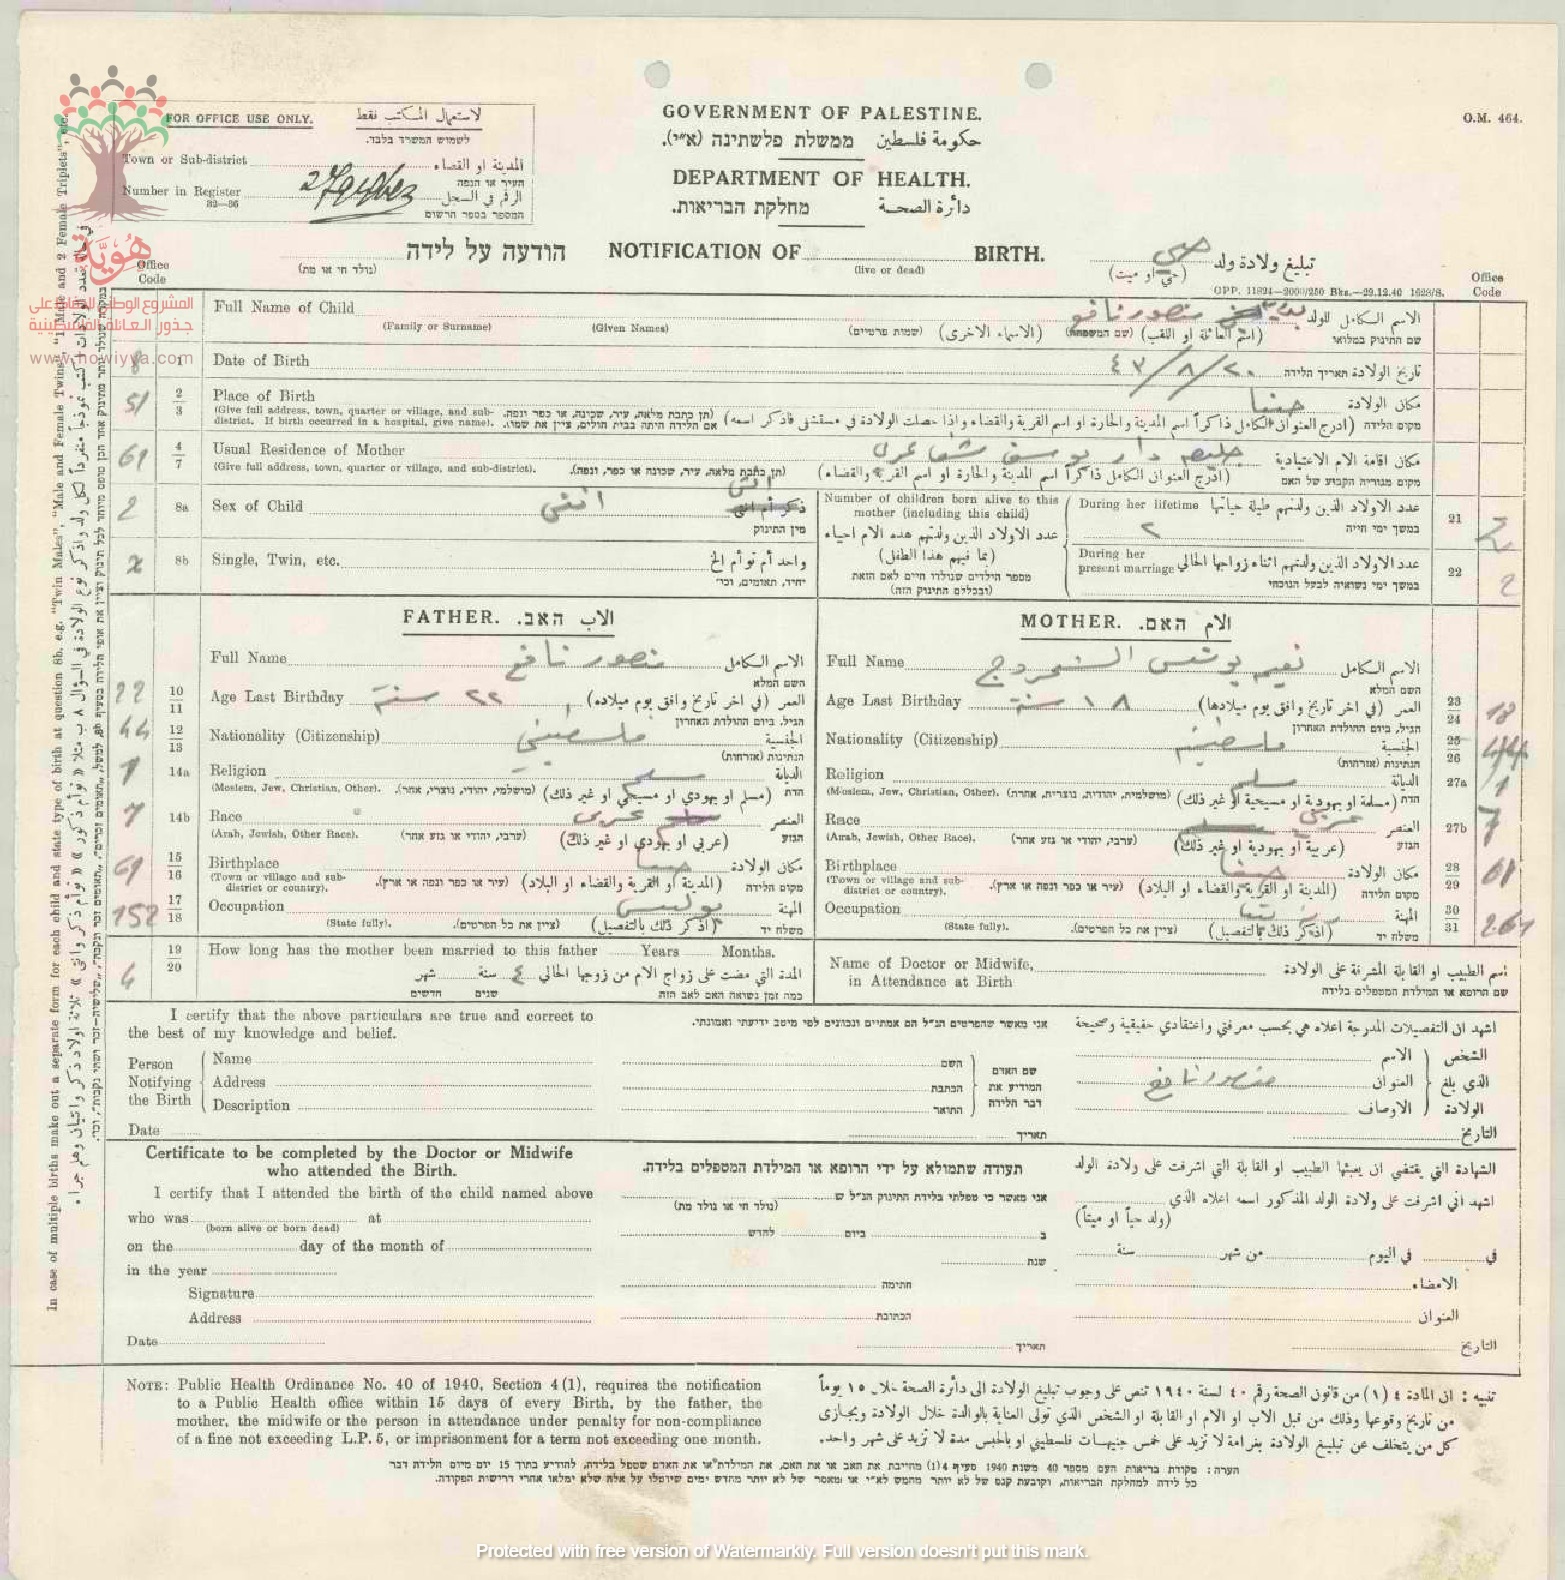 FOR OFFICE USE ONLY. لاستعمال المكاتب فقط
לשמוש המשרד בלבד.
Town or Sub-district المدينة او القضاء
העיר או הנפה
Number in Register الرقم في السجل
32—36 המספר בספר הרשום
GOVERNMENT OF PALESTINE.
حكومة فلسطين ממשלת פלשתינה (א״י).
DEPARTMENT OF HEALTH.
دائرة الصحة מחלקת הבריאות.
O.M. 464.
הודעה על לידה NOTIFICATION OF BIRTH. تبليغ ولادة ولد حي
(נולד חי או מת) (live or dead) (حي او ميت)
GPP. 11894—2000/250 Bks.—29.12.46 1628/S.
Office Code
Office Code
هُويّة
المشروع الوطني للحفاظ على
جذور العائلة الفلسطينية
www.howiyya.com
Full Name of Child منصور نافع الاسم الكامل للولد
(Family or Surname) (Given Names) (שמות פרטיים) (الاسماء الاخرى) (שם המשפחה) (اسم العائلة او اللقب) שם התינוק במלואו
8 1 Date of Birth ٢٠/٨/٤٧ تاريخ الولادة תאריך הלידה
51 2/3 Place of Birth حيفا مكان الولادة
(Give full address, town, quarter or village, and sub-district. If birth occurred in a hospital, give name). (תן כתבת מלאה, עיר, שכונה, או כפר ונפה. אם הלידה היתה בבית חולים, ציין את שמו). (ادرج العنوان الكامل ذاكراً اسم المدينة والحارة او اسم القرية والقضاء واذا حصلت الولادة في مستشفى فاذكر اسمه) מקום הלידה
61 4/7 Usual Residence of Mother دار يوسف مكان اقامة الام الاعتيادية
(Give full address, town, quarter or village, and sub-district). (תן כתבת מלאה, עיר, שכונה או כפר, ונפה). (ادرج العنوان الكامل ذاكراً اسم المدينة والحارة او اسم القرية والقضاء) מקום מגוריה הקבוע של האם
2 8a Sex of Child انثى ذكر أم انثى انثى
מין התינוק
8b Single, Twin, etc. واحد أم توأم الخ
יחיד, תאומים, וכו׳
Number of children born alive to this mother (including this child)
عدد الاولاد الذين ولدتهم هذه الام احياء
(بما فيهم هذا الطفل)
מספר הילדים שנולדו חיים לאם הזאת
(ובכללם התינוק הזה)
During her lifetime عدد الاولاد الذين ولدتهم طيلة حياتها 21
٢ במשך ימי חייה
During her present marriage عدد الاولاد الذين ولدتهم اثناء زواجها الحالي 22 2
במשך ימי נשואיה לבעל הנוכחי
FATHER. الاب האב.
Full Name منصور نافع الاسم الكامل
השם המלא
22 10/11 Age Last Birthday ٢٢ سنة العمر (في اخر تاريخ وافق يوم ميلاده)
הגיל, ביום ההולדת האחרון
44 12/13 Nationality (Citizenship) فلسطيني الجنسية
הנתינות (אזרחות)
1 14a Religion مسلم الديانة
(Moslem, Jew, Christian, Other). (מושלמי, יהודי, נוצרי, אחר). (مسلم او يهودي او مسيحي او غير ذلك) הדת
7 14b Race عربي العنصر
(Arab, Jewish, Other Race). (ערבי, יהודי או גזע אחר) (عربي او يهودي او غير ذلك) הגזע
61 15/16 Birthplace حيفا مكان الولادة
(Town or village and sub-district or country). (עיר או כפר ונפה או ארץ). (المدينة او القرية والقضاء او البلاد) מקום הלידה
152 17/18 Occupation بوليس المهنة
(State fully). (ציין את כל הפרטים). (اذكر ذلك بالتفصيل) משלח יד
4 19/20 How long has the mother been married to this father Years Months.
المدة التي مضت على زواج الام من زوجها الحالي ٤ سنة شهر
כמה זמן נשואה האם לאב הזה שנים חדשים
MOTHER. الام האם.
Full Name يونس الاسم الكامل
השם המלא
Age Last Birthday ١٨ سنة العمر (في اخر تاريخ وافق يوم ميلادها) 23/24 18
הגיל, ביום ההולדת האחרון
Nationality (Citizenship) الجنسية 25/26 44
הנתינות (אזרחות)
Religion الديانة 27a 1
(Moslem, Jew, Christian, Other). (מושלמית, יהודית, נוצרית, אחרת) (مسلمة او يهودية او مسيحية او غير ذلك) הדת
Race عربي العنصر 27b 7
(Arab, Jewish, Other Race). (ערבי, יהודי או גזע אחר) (عربية او يهودية او غير ذلك) הגזע
Birthplace حيفا مكان الولادة 28/29 61
(Town or village and sub-district or country). (עיר או כפר ונפה או ארץ). (المدينة او القرية والقضاء او البلاد) מקום הלידה
Occupation المهنة 30/31 261
(State fully). (ציין את כל הפרטים). (اذكر ذلك بالتفصيل) משלח יד
Name of Doctor or Midwife, in Attendance at Birth اسم الطبيب او القابلة المشرفة على الولادة
שם הרופא או המילדת המטפלים בלידה
I certify that the above particulars are true and correct to
the best of my knowledge and belief.
אני מאשר שהפרטים הנ״ל הם אמתיים ונכונים לפי מיטב ידיעתי ואמונתי.
اشهد ان التفصيلات المدرجة اعلاه هي بحسب معرفتي واعتقادي حقيقية وصحيحة
Person Notifying the Birth
Name
Address
Description
Date
השם
הכתבת
התואר
שם האדם המודיע את דבר הלידה
תאריך
الشخص الذي بلغ الولادة
الاسم
العنوان منصور نافع
الاوصاف
التاريخ
Certificate to be completed by the Doctor or Midwife
who attended the Birth.
I certify that I attended the birth of the child named above
who was at
(born alive or born dead)
on the day of the month of
in the year
Signature
Address
Date
תעודה שתמולא על ידי הרופא או המילדת המטפלים בלידה.
אני מאשר כי טפלתי בלידת התינוק הנ״ל ש
(נולד חי או נולד מת)
ב ביום לחדש
שנת
חתימה
הכתובת
תאריך
الشهادة التي يقتضي ان يعبئها الطبيب او القابلة التي اشرفت على ولادة الولد
اشهد اني اشرفت على ولادة الولد المذكور اسمه اعلاه الذي
(ولد حياً او ميتاً)
في في اليوم من شهر سنة
الامضاء
العنوان
التاريخ
NOTE: Public Health Ordinance No. 40 of 1940, Section 4(1), requires the notification
to a Public Health office within 15 days of every Birth, by the father, the
mother, the midwife or the person in attendance under penalty for non-compliance
of a fine not exceeding L.P. 5, or imprisonment for a term not exceeding one month.
تنبيه : ان المادة ٤ (١) من قانون الصحة رقم ٤٠ لسنة ١٩٤٠ تنص على وجوب تبليغ الولادة الى دائرة الصحة خلال ١٥ يوماً
من تاريخ وقوعها وذلك من قبل الاب او الام او القابلة او الشخص الذي تولى العناية بالوالدة خلال الولادة ويجازى
كل من يتخلف عن تبليغ الولادة بغرامة لا تزيد على خمس جنيهات فلسطيني او بالحبس مدة لا تزيد على شهر واحد.
הערה : פקודת בריאות העם מספר 40 משנת 1940 סעיף 4(1) מחייבת את האב או את האם, את המילדת או את האדם שטפל בלידה, להודיע בתוך 15 יום מיום הלידה דבר
כל לידה למחלקת הבריאות, וקובעת קנס של לא יותר מחמש לא״י או מאסר של לא יותר מחדש ימים שיוטלו על אלה שלא ימלאו אחרי דרישות הפקודה.
In case of multiple births make out a separate form for each child and state type of birth at question 8b, e.g. "Twin Males", "Male and Female Twins", "1 Male and 2 Female Triplets", etc.
Protected with free version of Watermarkly. Full version doesn't put this mark.